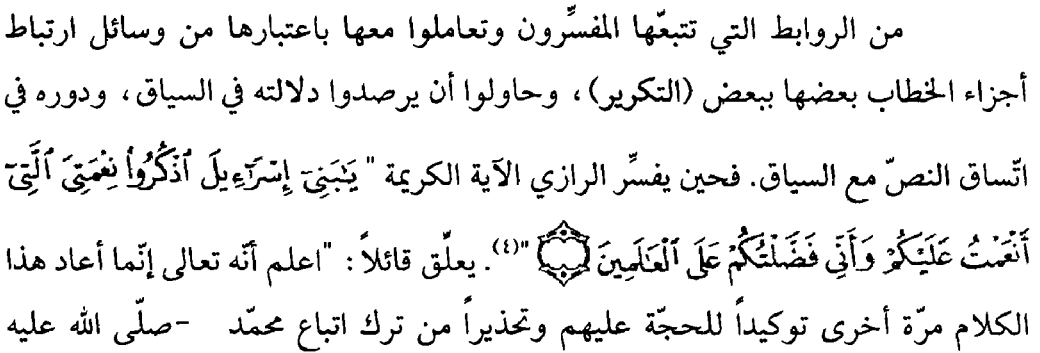 من الروابط التي تتبعّها المفسِّرون وتعاملوا معها باعتبارها من وسائل ارتباط
أجزاء الخطاب بعضها ببعض (التكرير)، وحاولوا أن يرصدوا دلالته في السياق، ودوره في
اتّساق النصّ مع السياق. فحين يفسِّر الرازي الآية الكريمة " يَٰبَنِىٓ إِسْرَٰٓءِيلَ ٱذْكُرُوا۟ نِعْمَتِىَ ٱلَّتِىٓ
أَنْعَمْتُ عَلَيْكُمْ وَأَنِّى فَضَّلْتُكُمْ عَلَى ٱلْعَٰلَمِينَ "(٤). يعلّق قائلاً: "اعلم أنّه تعالى إنّما أعاد هذا
الكلام مرّة أخرى توكيداً للحجّة عليهم وتحذيراً من ترك اتباع محمّد -صلّى الله عليه